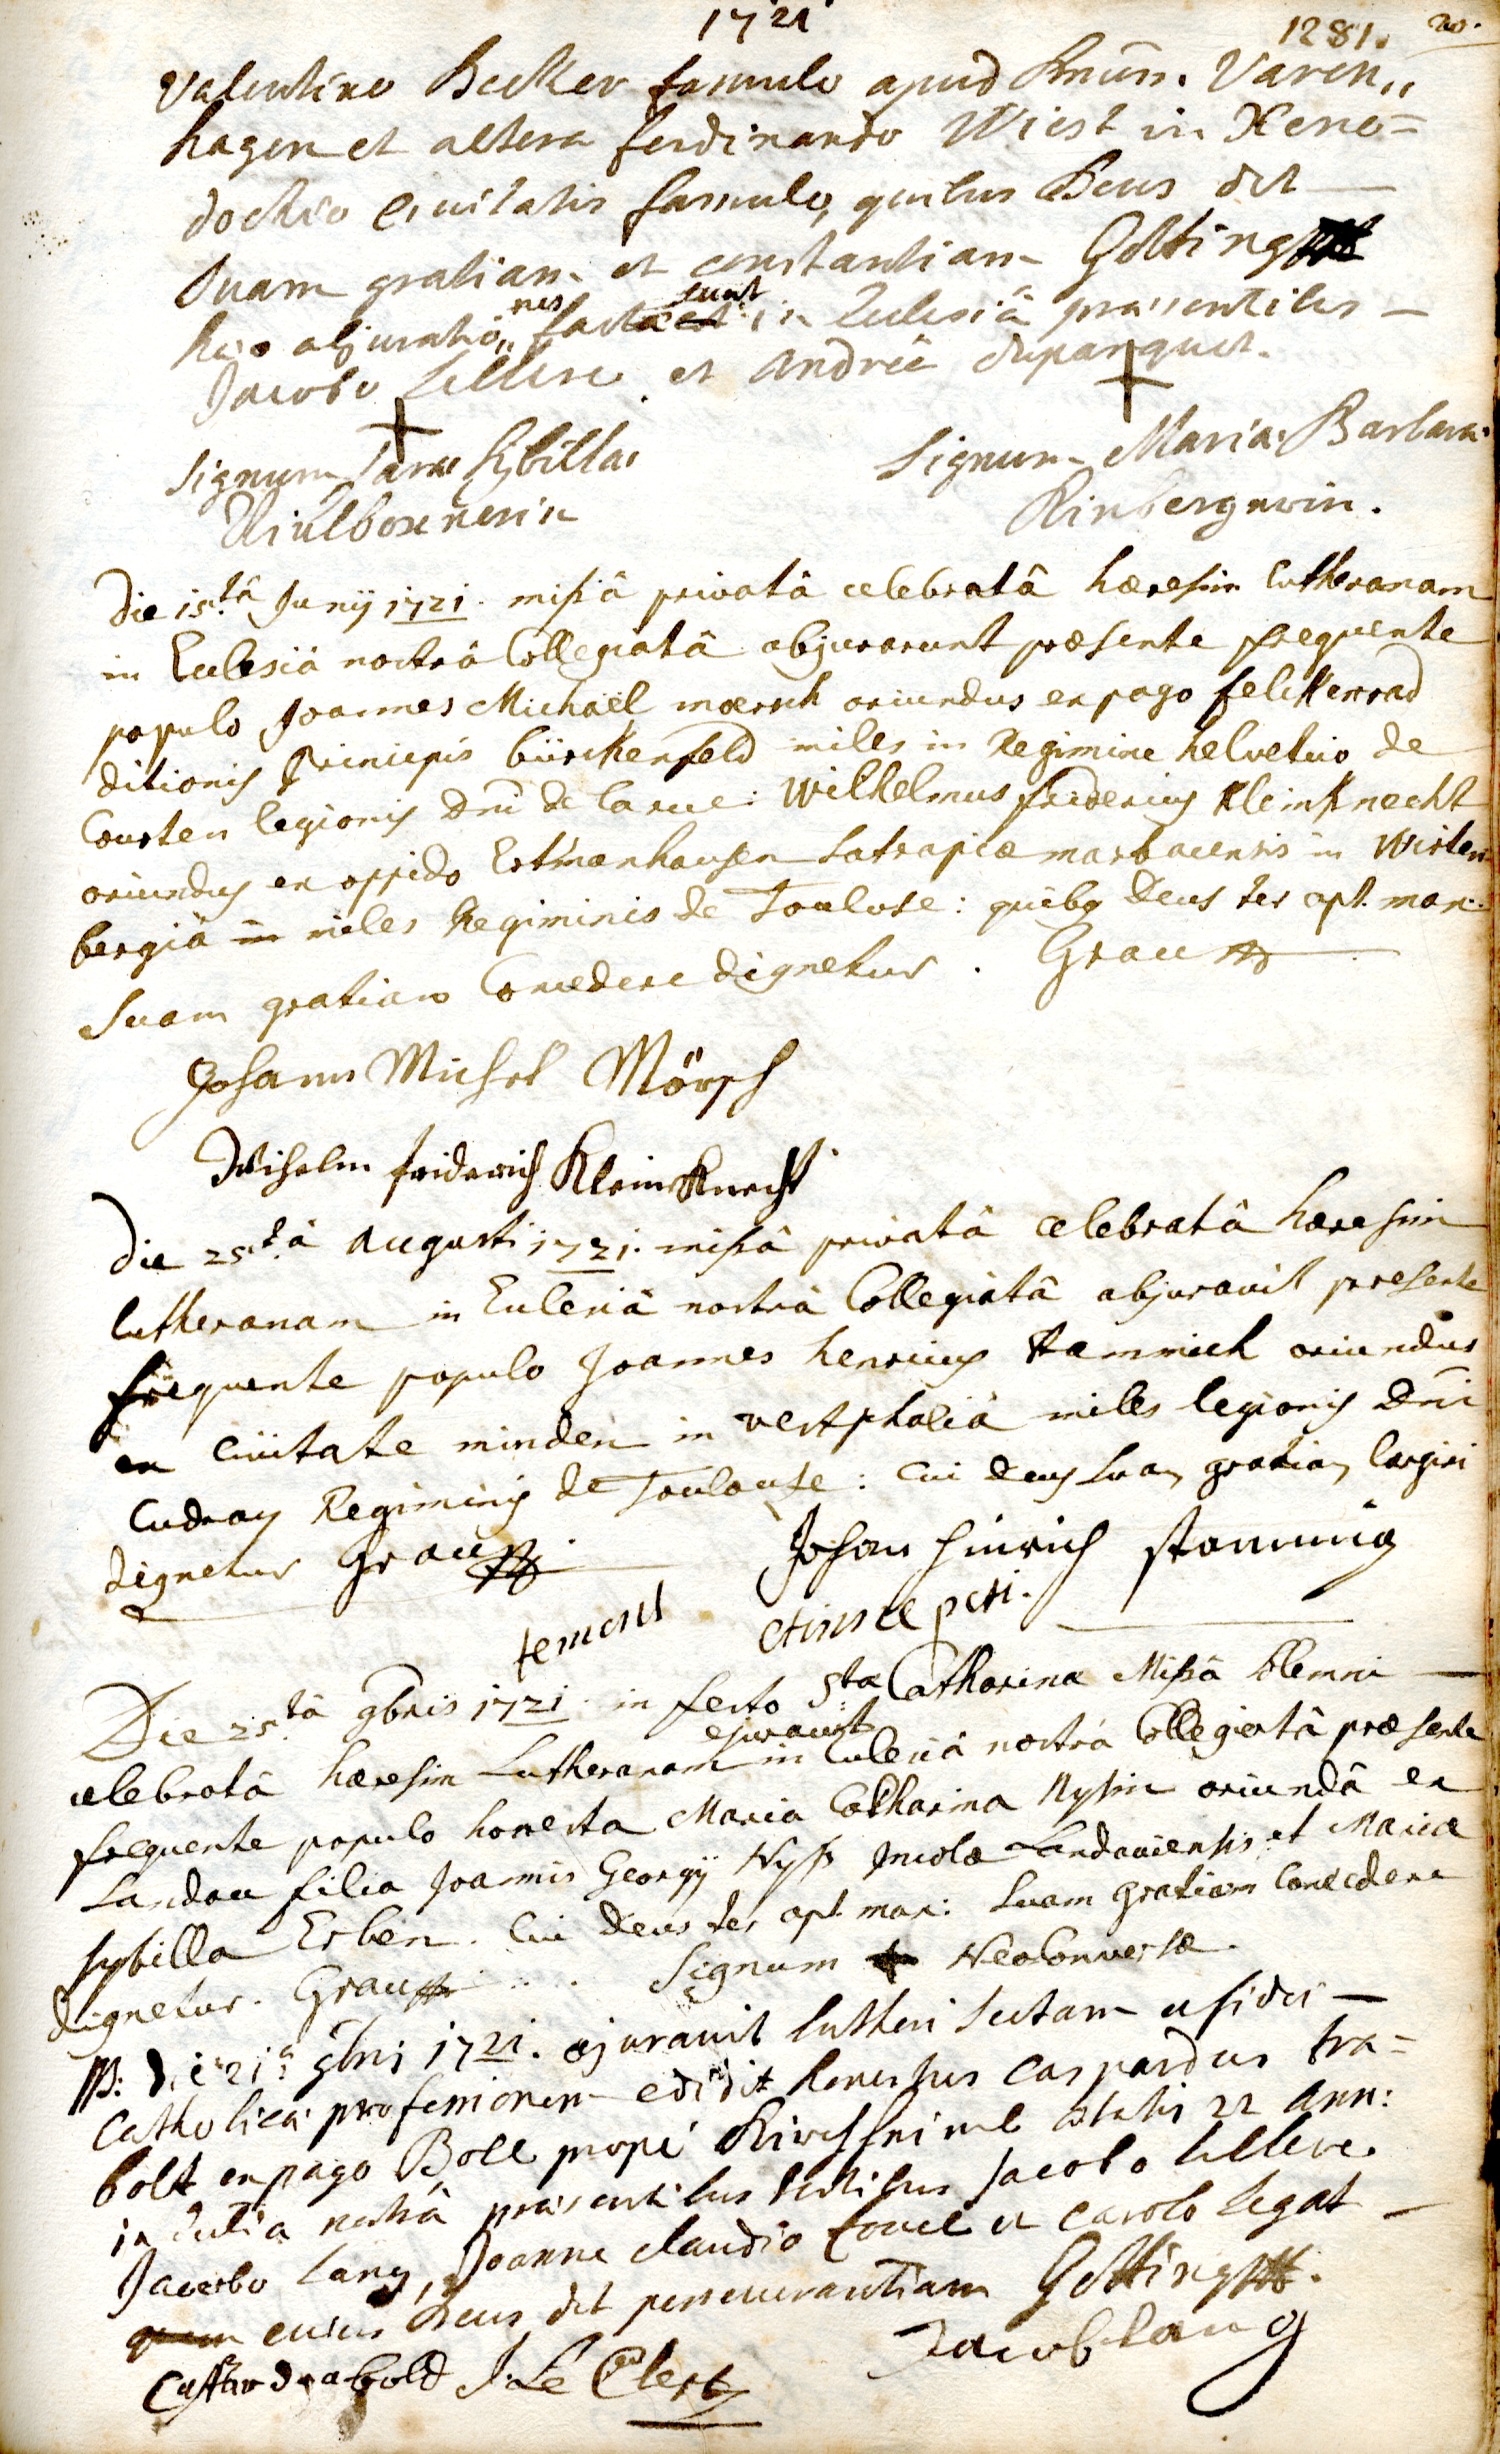 1721
1281. 20.
Valentino Becker famulo apud Dnum. Varen,,
hagen et altera ferdinando Wiest in Xeno=
dochio Civitatis famulo, quibus Deus det
suam gratiam et constantiam Götting
hae abjuratio,,nes factae sunt in Ecclesiâ praesentibus
Jacobo Lellere et Andreâ duparquet.
Signum Sarae Sybillae
Signum Maria Barbara
Rinbergerin.
die 15.tâ Junij 1721. missâ privatâ celebratâ haeresim lutheranam
in Ecclesiâ nostrâ Collegiatâ abjurarunt praesente frequente
populo Joannes Michaël moersch oriundus ex pago felckenrad
ditionis Principis bürckenfeld miles in Regimine helvetico de
Courten legionis Dni de la rue: Wilhelmus fridericus Kleinknecht
oriundus ex oppido Ertmanhausen Satrapiae marbacensis in Wirtem
bergiâ miles Regiminis de Toulouse: quibq Deus ter opt. max.
Suam gratiam Concedere dignetur. Grau
Johann Michel Mörsch
Wilhelm friderich Kleinknecht
die 25.tâ Augusti 1721. missâ privatâ celebratâ haeresim
lutheranam in Ecclesiâ nostrâ Collegiatâ abjuravit praesente
frequente populo Joannes henricus Stammich oriundus
ex Civitate minden in vestphaliâ miles legionis Dni
Cudray Regiminis de Toulouse: Cui deus suam gratiam largiri
dignetur Grau
Johan Hinrich stamming
Die 25.tâ 9bris 1721. in festo Sta Catharina Missâ solemni
celebratâ haeresim Lutheranam ejuravit in Ecclesiâ nostrâ Collegiatâ praesente
frequente populo honesta Maria Catharina Nysin oriundâ ex
Landau filia Joannis Georgij Nyss Incolae Landaviensis et Mariae
Sybilla Erben. Cui Deus ter opt. max: Suam gratiam Concedere
dignetur. Grau Signum + NeoConversae.
die 21.a 9bris 1721. ejuravit Lutheri Sectam ac fidei
Catholicae professionem edidit honestus Caspardus tra=
bolt ex pago Boll propè Kirchheim aetatis 22 ann:
in Ecclesia nostrâ praesentibus testibus Jacobo Lellere
Jacobo Lang, Joanne Claudio Conce et Carolo legat
cuius Deus det perseverantiam Götting
Jacob Lang
Casper drabold J: Le Clerc